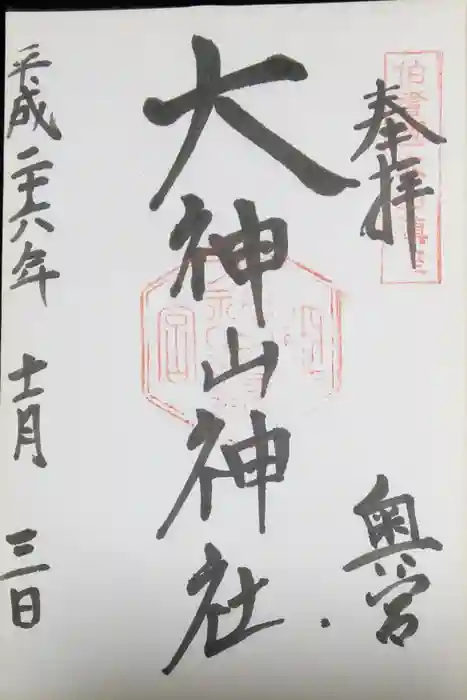 奉拝
奥宮
大神山神社
平成二十六年 十一月 三日